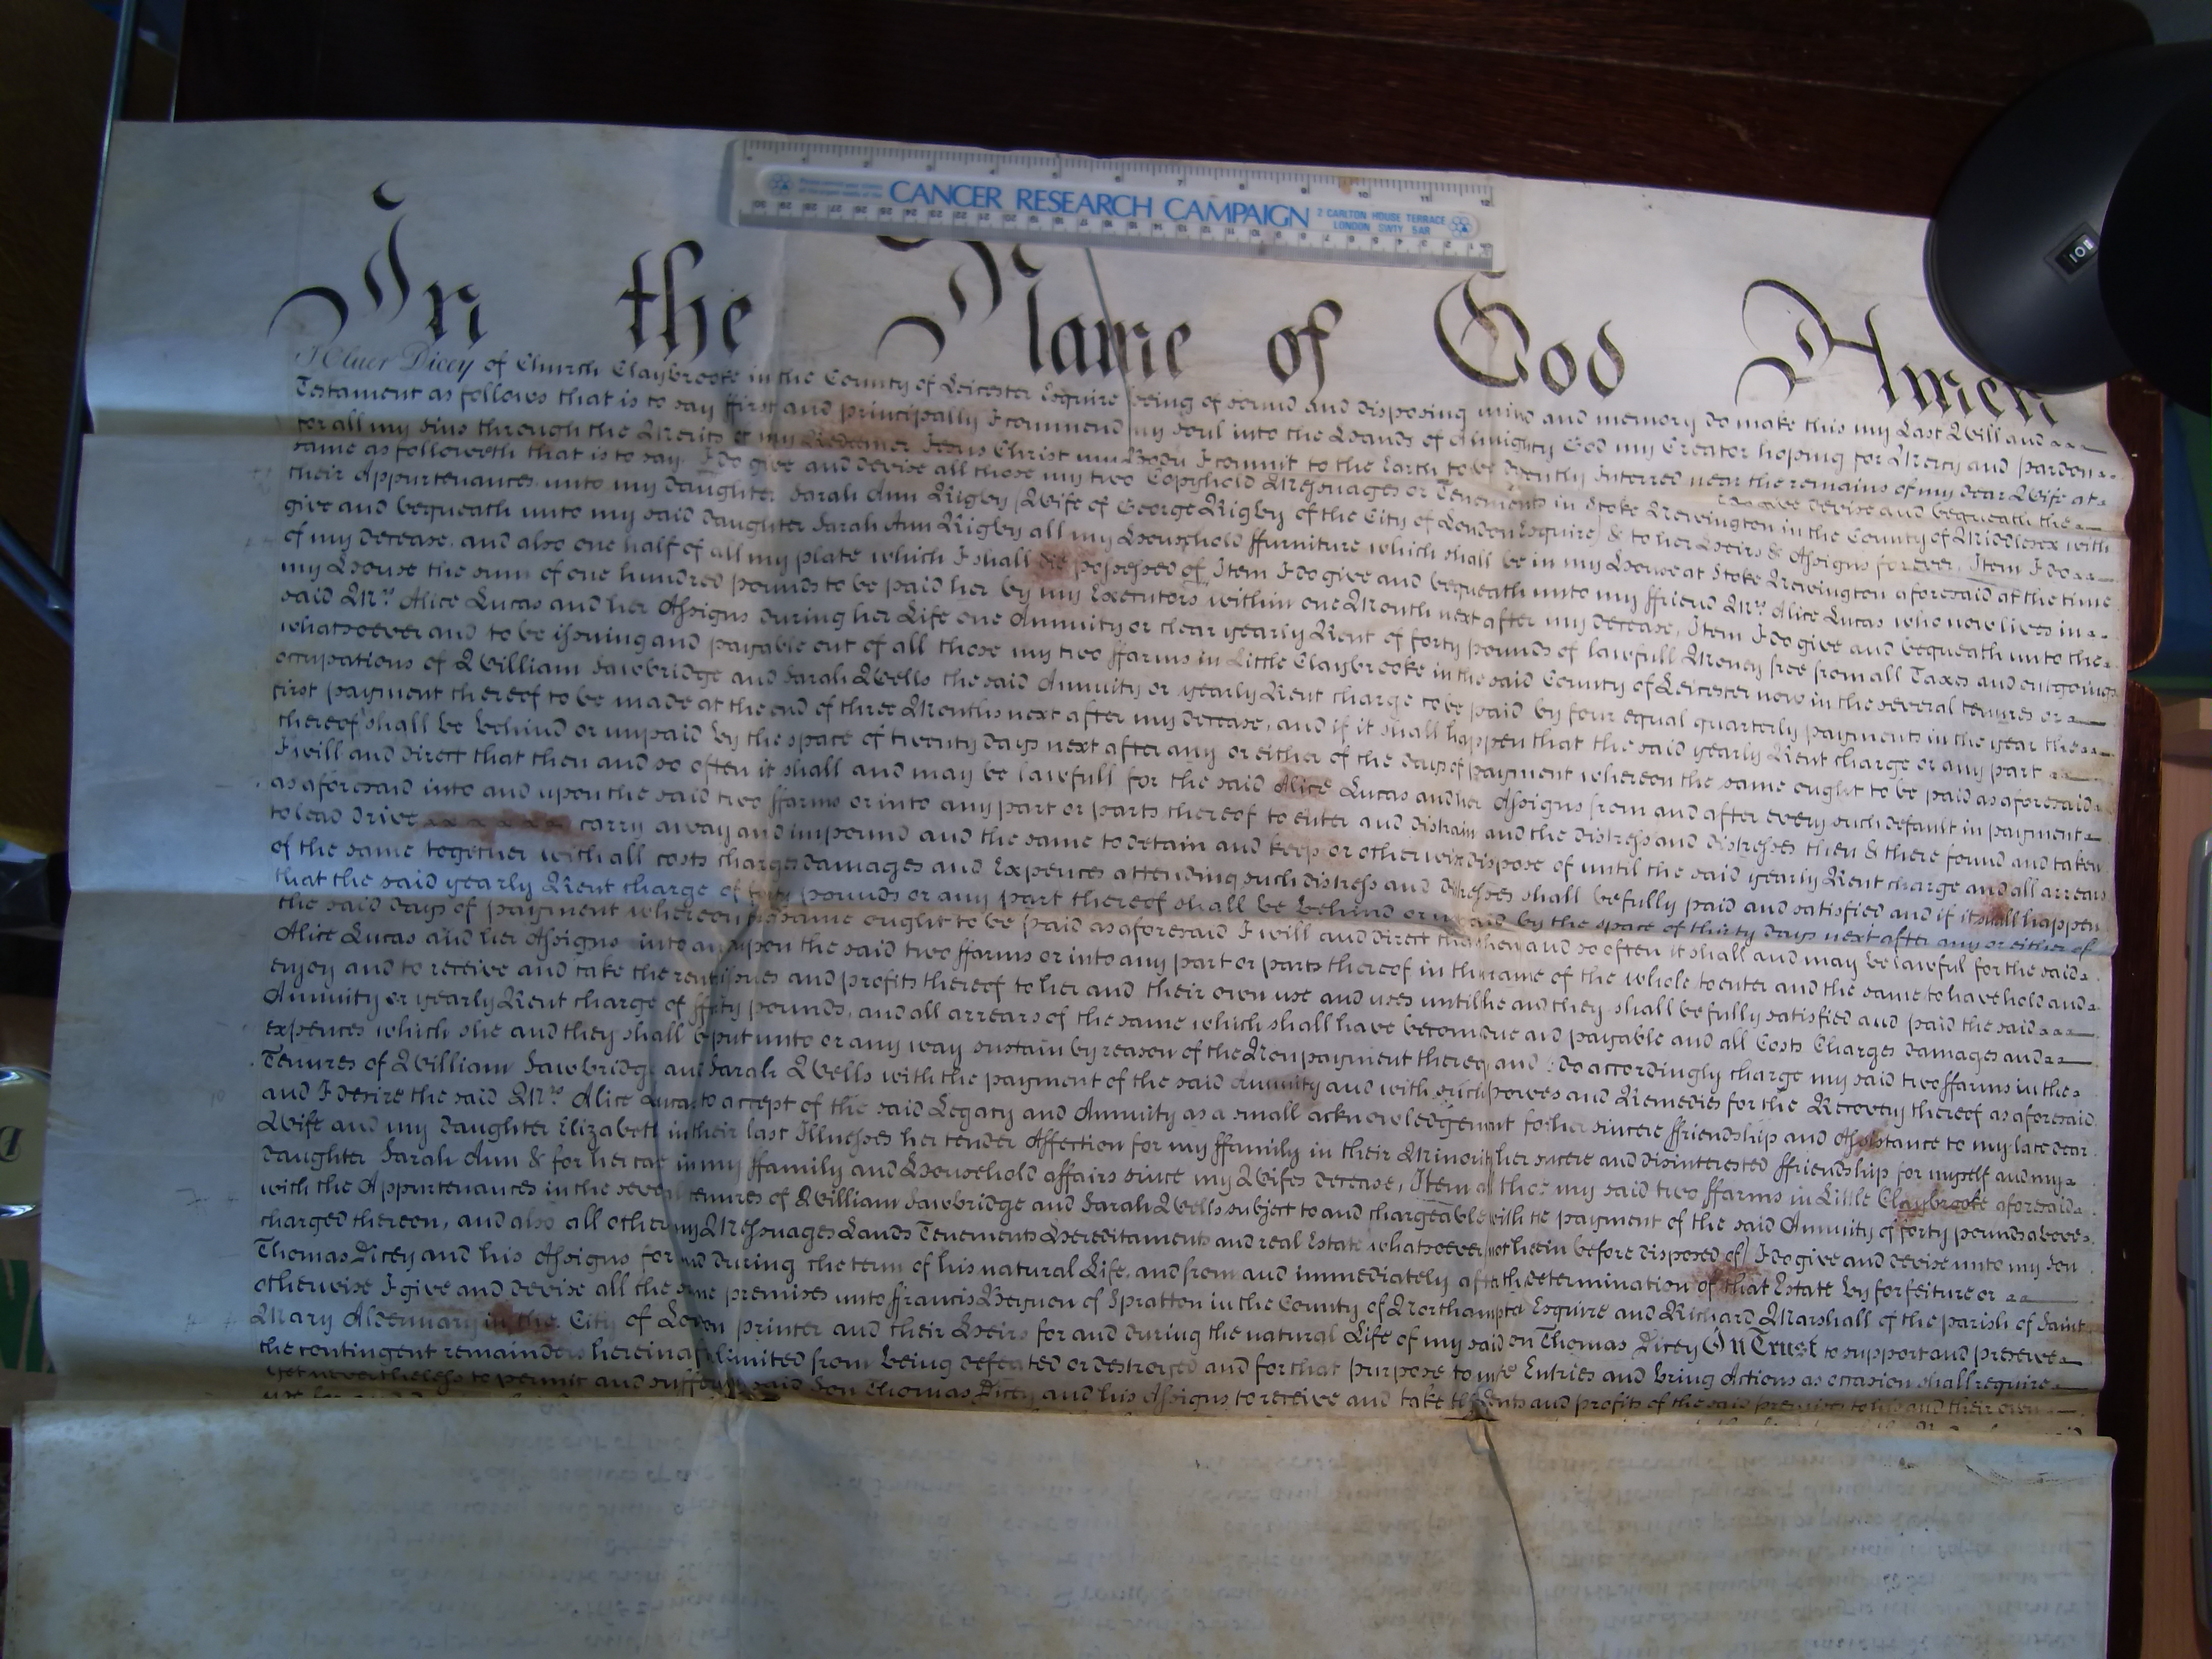 CANCER RESEARCH CAMPAIGN
2 CARLTON HOUSE TERRACE
LONDON SW1Y 5AR
In the Name of God Amen
I Cluer Dicey of Church Claybrooke in the County of Leicester Esquire being of sound and disposing mind and memory do make this my Last Will and
Testament as follows that is to say ffirst and principally I commend my Soul into the Hands of Almighty God my Creator hoping for Mercy and pardon
for all my Sins through the Merits of my Redeemer Jesus Christ my Body I commit to the Earth to be decently Interred near the remains of my dear Wife at
give devise and bequeath the
same as followeth that is to say. I do give and devise all those my two Copyhold Messuages or Tenements in Stoke Newington in the County of Middlesex with
their Appurtenances unto my Daughter Sarah Ann Rigby (Wife of George Rigby of the City of London Esquire) & to her Heirs & Assigns forever, Item I do
give and bequeath unto my said Daughter Sarah Ann Rigby all my Household ffurniture which shall be in my House at Stoke Newington aforesaid at the time
of my Decease, and also one half of all my plate which I shall die possessed of, Item I do give and bequeath unto my ffriend Mrs. Alice Lucas who now lives in
my House the sum of one hundred pounds to be paid her by my Executors within one Month next after my Decease, Item I do give and bequeath unto the
said Mrs. Alice Lucas and her Assigns during her Life one Annuity or clear yearly Rent of forty pounds of lawfull Money free from all Taxes and outgoings
whatsoever and to be issuing and payable out of all those my two ffarms in Little Claybrooke in the said County of Leicester now in the several tenures or
occupations of William Sawbridge and Sarah Wells the said Annuity or yearly Rent charge to be paid by four equal quarterly payments in the year the
first payment thereof to be made at the end of three Months next after my Decease, and if it shall happen that the said yearly Rent charge or any part
thereof shall be behind or unpaid by the space of twenty Days next after any or either of the Days of payment whereon the same ought to be paid as aforesaid
I will and direct that then and so often it shall and may be lawfull for the said Alice Lucas and her Assigns from and after every such default in payment
as aforesaid into and upon the said two ffarms or into any part or parts thereof to enter and distrain and the distress and distresses then & there found and taken
to lead drive carry away and impound and the same to detain and keep or otherwise dispose of until the said yearly Rent charge and all arrears
of the same together with all costs charges Damages and Expences attending such distress and distresses shall be fully paid and satisfied and if it shall happen
that the said yearly Rent charge of forty pounds or any part thereof shall be behind or unpaid by the space of thirty Days next after any or either of
the said Days of payment whereon the same ought to be paid as aforesaid I will and direct that then and so often it shall and may be lawful for the said
Alice Lucas and her Assigns into and upon the said two ffarms or into any part or parts thereof in the name of the whole to enter and the same to have hold and
enjoy and to receive and take the rents issues and profits thereof to her and their own use and uses until she and they shall be fully satisfied and paid the said
Annuity or yearly Rent charge of fforty pounds, and all arrears of the same which shall have become due and payable and all Costs Charges Damages and
expences which she and they shall be put unto or any way sustain by reason of the Non payment thereof and I do accordingly charge my said two ffarms in the
Tenures of William Sawbridge and Sarah Wells with the payment of the said Annuity and with such powers and Remedies for the Recovery thereof as aforesaid
and I desire the said Mrs. Alice Lucas to accept of the said Legacy and Annuity as a small acknowledgement for her sincere ffriendship and Assistance to my late dear
Wife and my Daughter Elizabeth in their last Illnesses her tender Affection for my ffamily in their Minority her sincere and disinterested ffriendship for myself and my
Daughter Sarah Ann & for her care in my ffamily and Household affairs since my Wifes Decease, Item all those my said two ffarms in Little Claybrooke aforesaid
with the Appurtenances in the several tenures of William Sawbridge and Sarah Wells subject to and chargeable with the payment of the said Annuity of forty pounds above
charged thereon, and also all other my Messuages Lands Tenements Hereditaments and real Estate whatsoever (not herein before disposed of) I do give and devise unto my Son
Thomas Dicey and his Assigns for and during the term of his natural Life, and from and immediately after the determination of that Estate by forfeiture or
otherwise I give and devise all the same premises unto ffrancis Beynon of Spratton in the County of Northampton Esquire and Richard Marshall of the parish of Saint
Mary Aldermary in the City of London printer and their Heirs for and during the natural Life of my said Son Thomas Dicey In Trust to support and preserve
the contingent remainders hereinafter limited from being defeated or destroyed and for that purpose to make Entries and bring Actions as occasion shall require
yet nevertheless to permit and suffer my said Son Thomas Dicey and his Assigns to receive and take the rents and profits of the said premises to his and their own